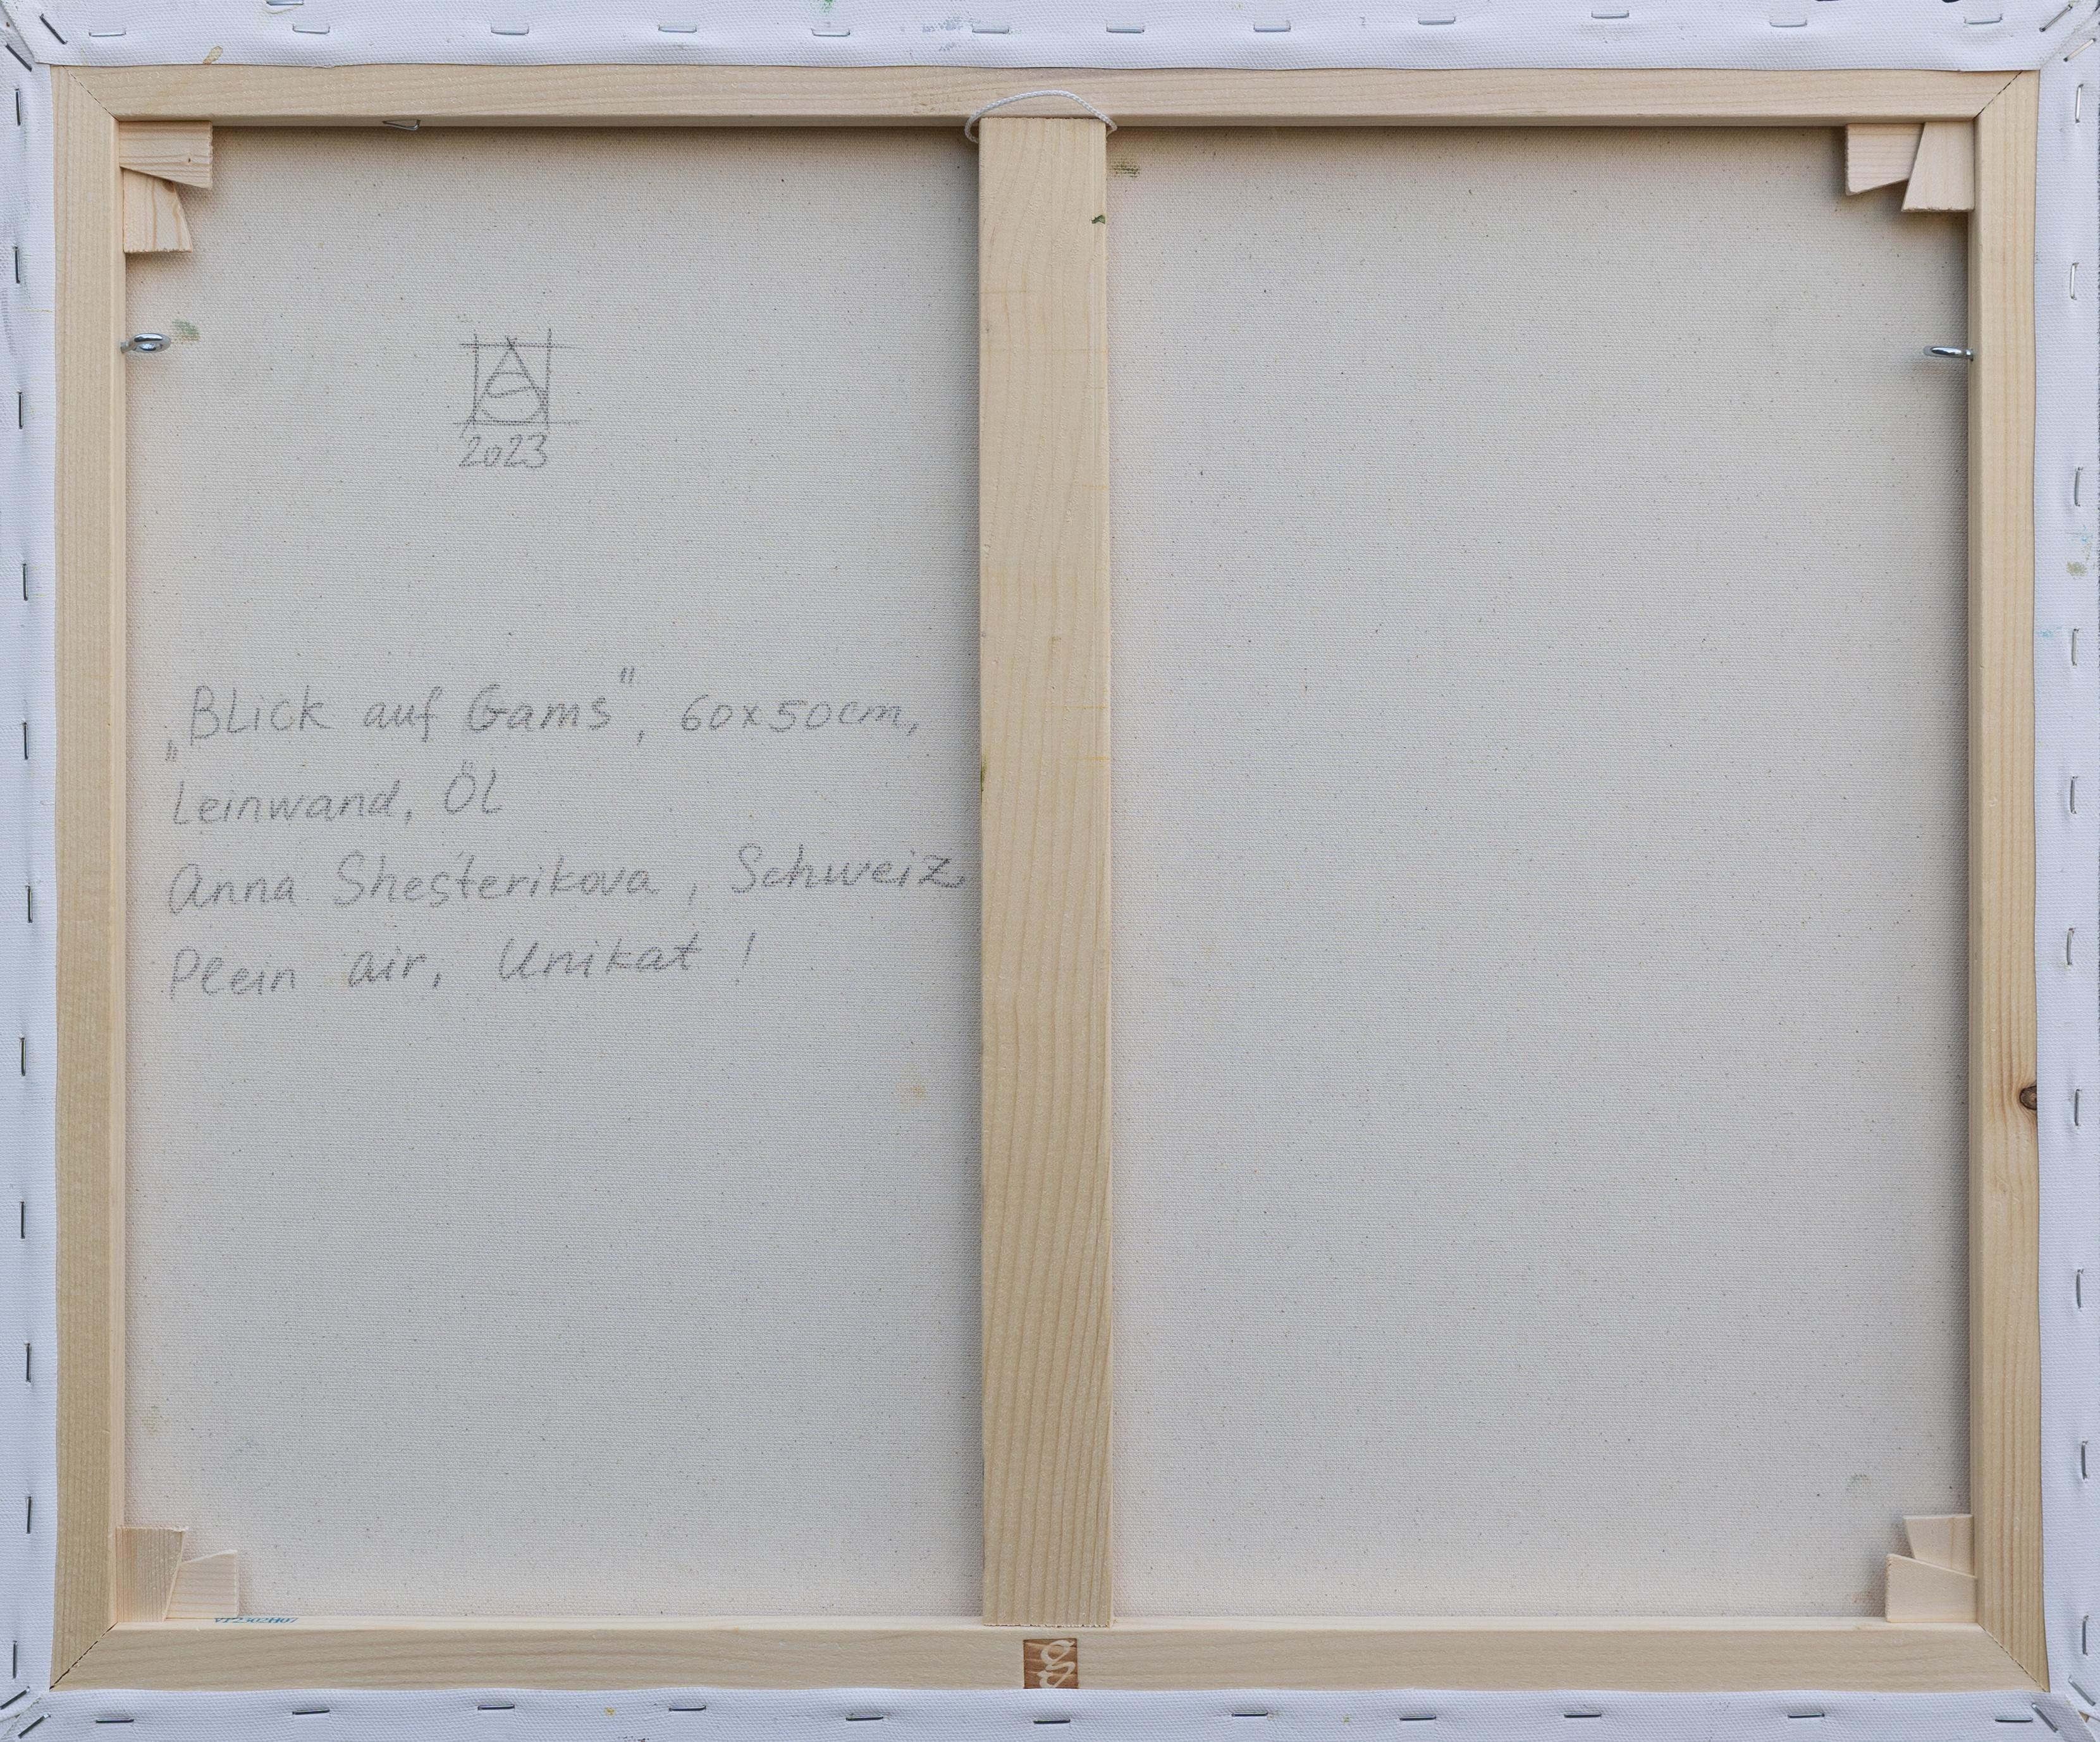 2023
„Blick auf Gams", 60x50cm,
Leinwand, Öl
Anna Shesterikova, Schweiz
Plein air, Unikat!